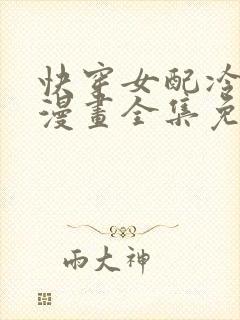 快穿女配冷
漫畫全集免
雨大神